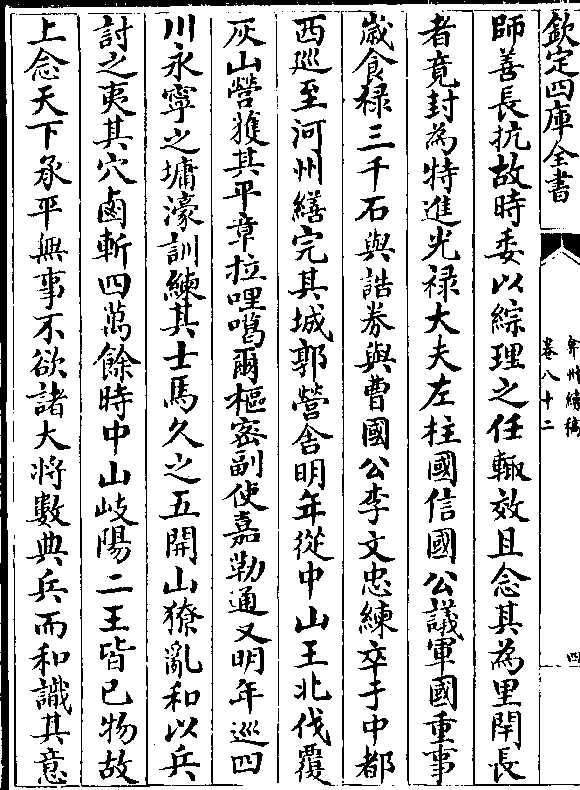 欽定四庫全書
弇州續稿
卷八十二
四
師善長抗故時委以綜理之任輙效且念其為里閈長
者竟封為特進光禄大夫左柱國信國公議軍國重事
歲食禄三千石與誥券與曹國公李文忠練卒于中都
西廵至河州繕完其城郭營舎明年從中山王北伐覆
灰山營獲其平章拉哩噶爾樞密副使嘉勒通又明年巡四
川永寧之墉濠訓練其士馬久之五開山獠亂和以兵
討之夷其穴鹵斬四萬餘時中山岐陽二王皆已物故
上念天下承平無事不欲諸大将數典兵而和識其意